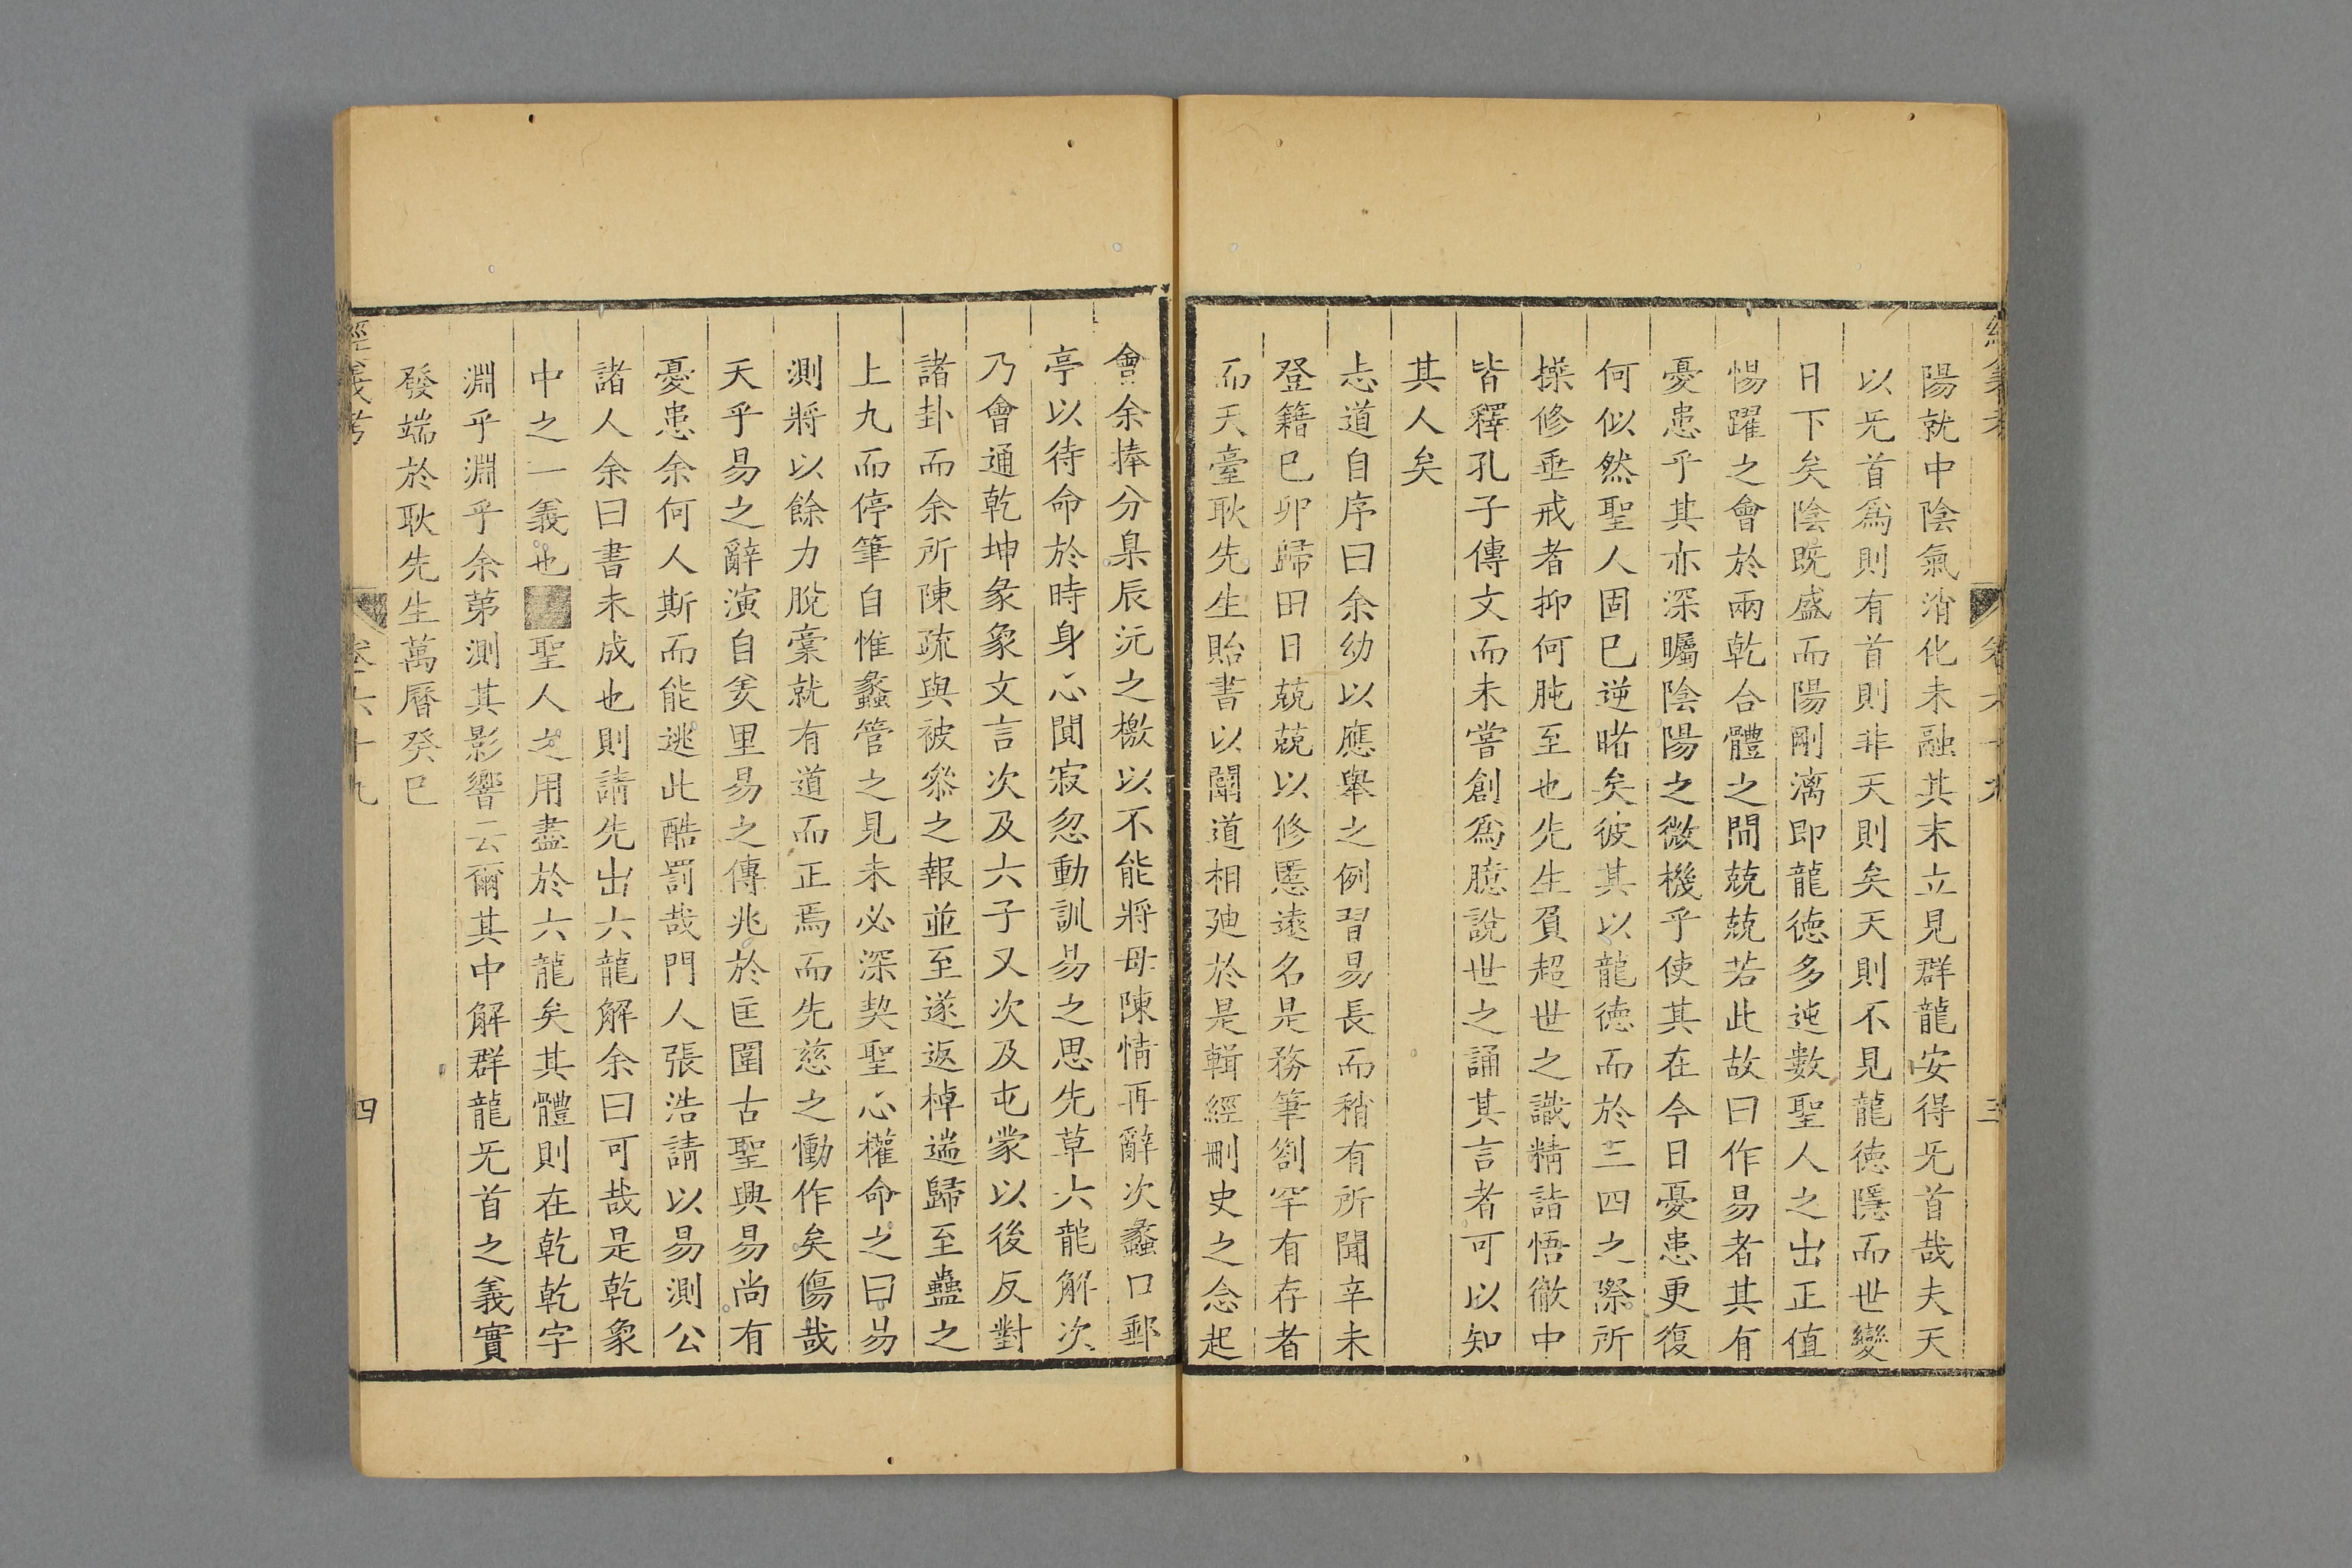 陽就中陰氣消化未融其末立見群龍安得旡首哉夫天
以旡首爲則有首則非天則矣天則不見龍德隱而世變
日下矣陰既盛而陽剛漓即龍德多迍數聖人之出正值
惕躍之會於兩乾合體之間兢兢若此故曰作易者其有
憂患乎其亦深矚陰陽之微機乎使其在今日憂患更復
何似然聖人固已逆睹矣彼其以龍德而於三四之際所
操修垂戒者抑何肫至也先生負超世之識精詣悟徹中
皆釋孔子傳文而未嘗創爲臆說世之誦其言者可以知
其人矣
志道自序曰余幼以應舉之例習易長而稍有所聞辛未
登籍已卯歸田日兢兢以修慝遠名是務筆劄罕有存者
而天臺耿先生貽書以闡道相廸於是輯經刪史之念起
會余捧分臬辰沅之檄以不能將母陳情再辭次蠡口郵
亭以待命於時身心閴寂忽動訓易之思先草六龍解次
乃會通乾坤彖象文言次及六子又次及屯蒙以後反對
諸卦而余所陳疏與被叅之報並至遂返棹遄歸至蠱之
上九而停筆自惟蠡管之見未必深契聖心權命之曰易
測將以餘力脫稾就有道而正焉而先慈之慟作矣傷哉
天乎易之辭演自羑里易之傳兆於匡圍古聖興易尚有
憂患余何人斯而能逃此酷罰哉門人張浩請以易測公
諸人余曰書未成也則請先出六龍解余曰可哉是乾象
中之一義也聖人之用盡於六龍矣其體則在乾乾字
淵乎淵乎余第測其影響云爾其中解群龍旡首之義實
發端於耿先生萬曆癸巳
經義考
卷六十九
四